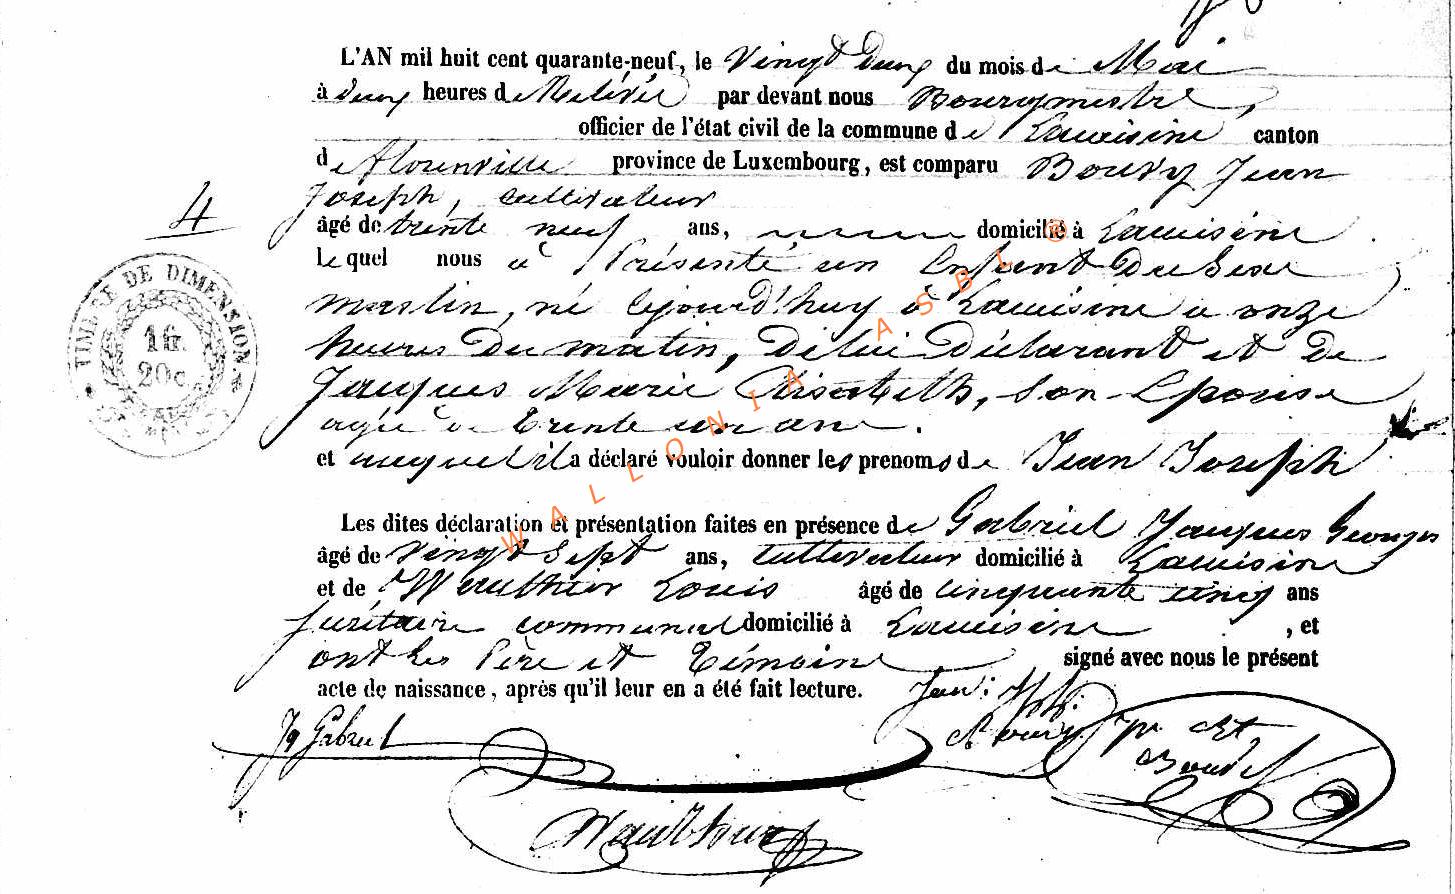 L'AN mil huit cent quarante-neuf, le vingt deux du mois de Mai
à deux heures de Relevée par devant nous Bourgmestre,
officier de l'état civil de la commune de Lacuisine canton
de Florenville province de Luxembourg, est comparu Bouvy Jean
Joseph, cultivateur
4
âgé de trente neuf ans, domicilié à Lacuisine
le quel nous a Présenté un Enfant Du Sexe
masculin, né cejourd'huy à Lacuisine a onze
heures Du matin, De lui Déclarant et De
Jacques Marie Elisabeth, son Epouse
agée de trente un ans.
et auquel il a déclaré vouloir donner les prenoms de Jean Joseph
TIMBRE DE DIMENSION
1 fr.
20 c.
WALLONIA ASBL ®
Les dites déclaration et présentation faites en présence de Gabriel Jacques Georges
âgé de vingt sept ans, cultivateur domicilié à Lacuisine
et de Wauthier Louis âgé de cinquante cinq ans
communal domicilié à Lacuisine , et
ont les Père et Témoins signé avec nous le présent
acte de naissance, après qu'il leur en a été fait lecture.
Jean: Jph:
Jq Gabriel Bouvy
Wauthier